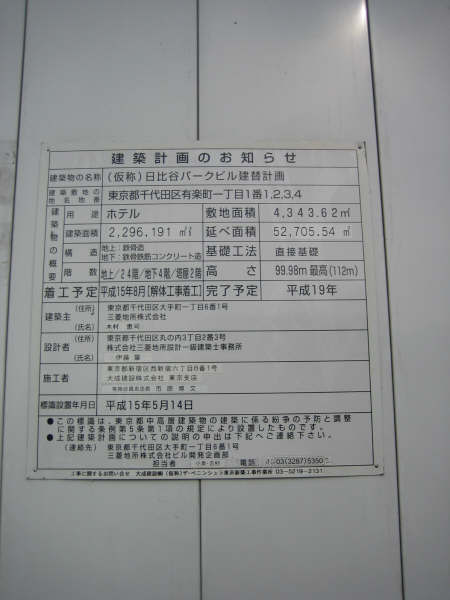 建築計画のお知らせ
建築物の名称 (仮称)日比谷パークビル建替計画
建築敷地の地名地番 東京都千代田区有楽町一丁目1番1,2,3,4
建築物の概要
用途 ホテル 敷地面積 4,343.62㎡
建築面積 2,296,191㎡ 延べ面積 52,705.54㎡
構造 地上:鉄骨造 地下:鉄骨鉄筋コンクリート造 基礎工法 直接基礎
階数 地上/24階/地下4階/塔屋2階 高さ 99.98m 最高(112m)
着工予定 平成15年8月[解体工事着工] 完了予定 平成19年
建築主 (住所) 東京都千代田区大手町一丁目6番1号
三菱地所株式会社
(氏名) 木村 惠司
設計者 (住所) 東京都千代田区丸の内3丁目2番3号
株式会社三菱地所設計一級建築士事務所
(氏名) 伊藤
施工者 (住所) 東京都新宿区西新宿六丁目8番1号
大成建設株式会社 東京支店
(氏名) 市原 博文
標識設置年月日 平成15年5月14日
●この標識は、東京都中高層建築物の建築に係る紛争の予防と調整
に関する条例第5条第1項の規定により設置したものです。
●上記建築計画についての説明の申出は下記へご連絡下さい。
(連絡先) 東京都千代田区大手町一丁目6番1号
三菱地所株式会社ビル開発企画部
担当者 電話 03(3287)5350
工事に関するお問い合せ 大成建設㈱(仮称)ザ・ペニンシュラ東京新築工事作業所 03-5219-2131